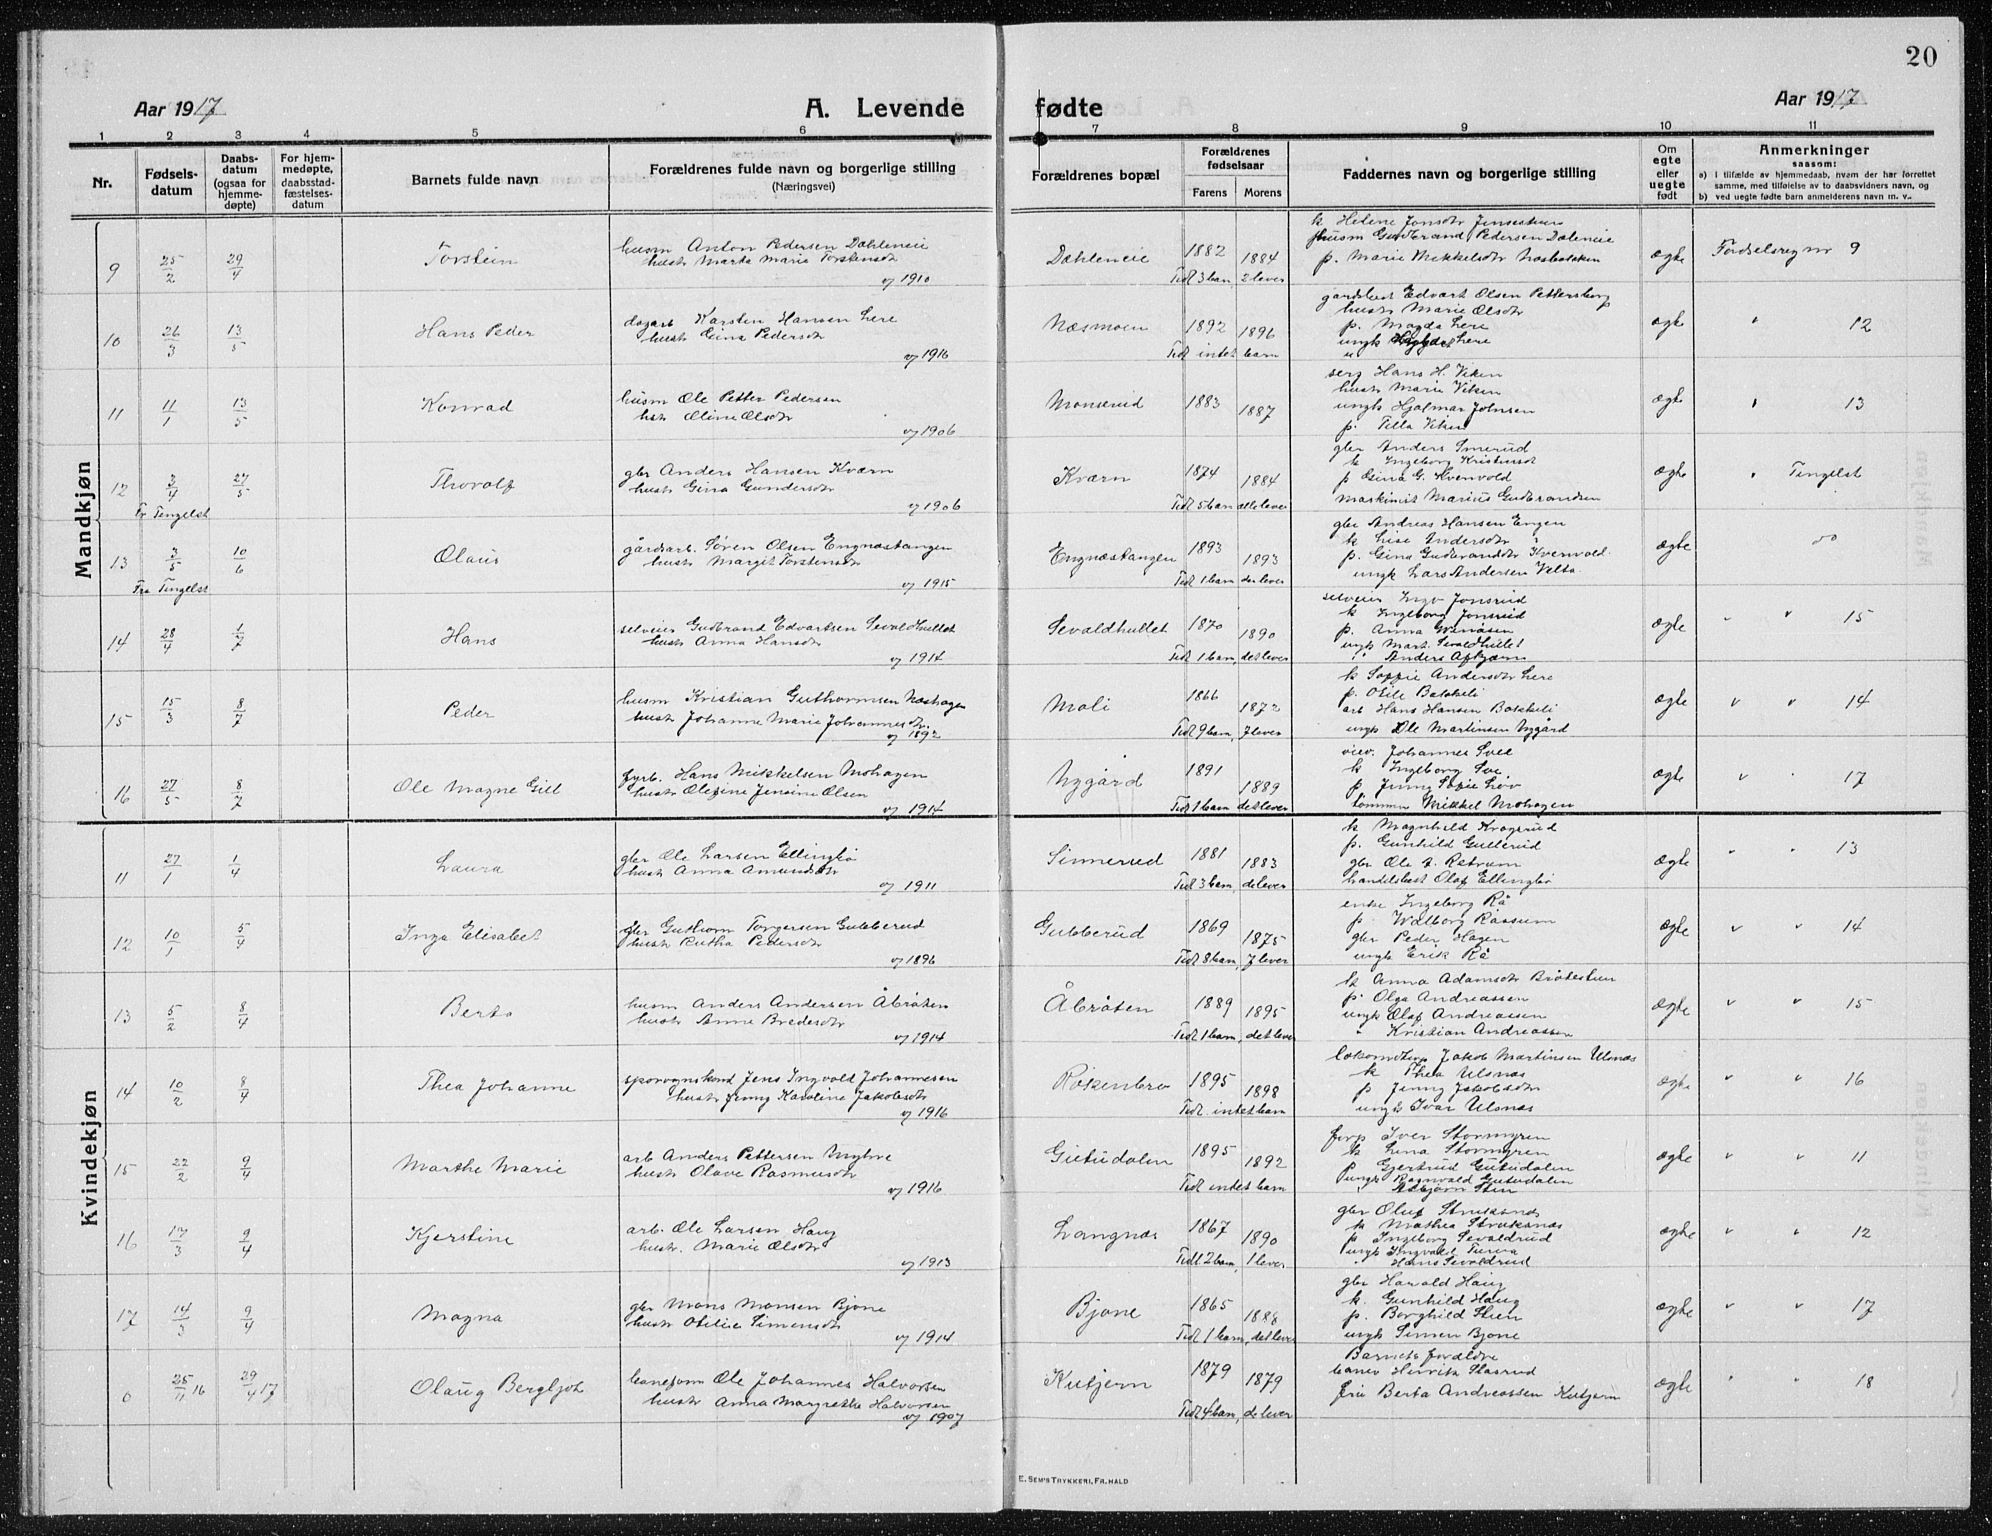 20
Aar 1917
A. Levende
fødte
Aar 1917
1 2 3 4 5 6 7 8 9 10 11
Nr.
Fødsels-
datum
Daabs-
datum
(ogsaa for
hjemme-
døpte)
For hjem-
medøpte,
daabsstad-
fæstelses-
datum
Barnets fulde navn
Forældrenes fulde navn og borgerlige stilling
(Næringsvei)
Forældrenes bopæl
Forældrenes
fødselsaar
Farens Morens
Faddernes navn og borgerlige stilling
Om
egte
eller
uegte
født
Anmerkninger
saasom:
a) I tilfælde av hjemmedaab, hvem der har forrettet
samme, med tilføielse av to daabsvidners navn, og
b) ved uegte fødte barn anmelderens navn m. v.
Mandkjøn
9 25/2 29/4 Torstein
husm Anton Pedersen Dæhleneie
hustr Marta Marie Torstensdtr
og 1910
Dæhleneie 1882 1884
Tidl 3 barn 2 lever
k Helene Jonsdtr
husm Gudbrand Pedersen Dæleneie
p. Marie Mikkelsdtr
ægte Fødselsreg nr 9
10 26/3 13/5 Hans Peder
dagarb Karsten Hansen Lere
hustr Gina Pedersdtr
og 1916
Næsmoen 1892 1896
Tidl intet barn
gårdsbest Edvart Olsen Pettersborg
hustr Marie Olsdtr
p. Magda Lere
ungk Lere
ægte " 12
11 11/1 13/5 Konrad
husm Ole Petter Pedersen
hstr Oline Olsdtr
og 1906
Monserud 1883 1887
serg Hans H. Viken
hustr Marie Viken
ungk Hjalmar Johnsen
p. Tilla Viken
ægte " 13
12 3/4 27/5 Thorolf
Fr Tingelst
gbr Anders Hansen Kværn
hustr Gina Gundersdtr
og 1906
Kværn 1874 1884
Tidl 5 barn alle lever
gbr Anders Smerud
k Ingeborg Kristensdt
p Gina G. Kvenvold
maskinist Marius Gudbrandsen
ægte " Tingelst
13 3/5 10/6 Olaus
Fra Tingelst
gårdsarb. Søren Olsen Engnæstangen
hustr Margit Torstensdtr
og 1915
Engnæstangen 1893 1893
Tidl 1 barn der lever
gbr Andreas Hansen Engen
k Lise Andersdtr "
p. Gina Gudbrandsdtr Kvenvold
ungk Lars Andersen Velta
ægte
14 28/4 1/7 Hans
selveier Gudbrand Edvartsen Sevaldhullet
hustr Anna Hansdtr
og 1914
Sevaldhullet 1870 1890
Tidl 1 barn, det lever
selveier Ingv Jonsrud
k Ingeborg Jonsrud
p. Anna
ungk Mart. Sevaldhullet
" Anders
ægte " " 15
15 15/3 8/7 Peder
husm Kristian Guthormsen Næshagen
hustr Johanne Marie Johannesdtr.
og 1892
Moli 1866 1872
Tidl 9 barn, 7 lever
k Soffie Andersdtr Lere
p. Otile Bakkeli
arb Hans Hansen Bakkeli
ungk Ole Martinsen Nygård
ægte " " 14
16 27/5 8/7 Ole Magne Gill
fyrb. Hans Mikkelsen Mohagen
hustr Olefine Jensine Olsen
og 1914
Nygård 1891 1889
Tidl 1 barn det lever
Johannes Svee
k Ingeborg Sve
p. Jenny Sofie Lov
tømmerm Mikkel Mohagen
ægte " " 17
Kvindekjøn
11 27/1 1/4 Laura
gbr Ole Larsen Ellingbø
hustr Anna Amundsdtr
og 1911
Sinnerud 1881 1883
Tidl 3 barn, de lever
k Magnhild Kragerud
p. Gunhild Gullerud
gbr Ole A. Røtrum
handelsbest Olaf Ellingbø
ægte " " 13
12 10/1 5/4 Inga Elisabet
gbr Guthorm Torgersen Gubberud
hustr Rutha Pedersdtr
og 1896
Gubberud 1869 1875
Tidl 8 barn, 7 lever
enke Ingeborg Rå
p. Walborg Råssum
gbr Peder Hagen
ungk Erik Rå
ægte " " 14
13 5/2 8/4 Berta
husm Anders Andersen Åbråten
hustr Anne Bredesdtr
og 1914
Åbråten 1889 1895
Tidl 1 barn, det lever
k Anna Adamsdtr Bråtestuen
p. Olga Andreassen
ungk Olaf Andreassen
" Kristian Andreassen
ægte " " 15
14 10/2 8/4 Thea Johanne
sporvognskond Jens Ingvold Johannesen
hustr Jenny Karoline Jakobsdtr
og 1916
Røkenbro 1895 1898
Tidl. intet barn
Jakob Martinsen Ulsnæs
k Thea Ulsnæs
p Jenny Jakobsdtr
ungk Ivar Ulsnæs
ægte " " 16
15 22/2 9/4 Marthe Marie
arb Anders Pettersen Myhre
hustr Olave Rasmusdtr
og 1916
Gutudalen 1895 1892
Tidl intet barn
forp Iver Stormyren
k Lina Stormyren
p Gjertrud Gutudalen
ungk Ragnvald Gutudalen
" Asbjørn Stein
ægte " " 11
16 17/3 9/4 Kjerstine
arb. Ole Larsen Haug
hustr. Marie Olsdtr
og 1913
Langnæs 1867 1890
Tidl 2 barn, 1 lever
gbr Oluf Struksnæs
k Mathea Struksnæs
p Ingeborg Sevaldrud
ungk Ingvald
" Hans Sevaldrud
ægte " " 12
17 14/3 9/4 Magna
gbr Mons Monsen Bjone
hustr Otilie Simensdtr
og 1914
Bjone 1865 1888
Tidl 1 barn, det lever
gbr Harald Haug
k. Gunhild Haug
p. Borghild Stien
ungk Simen Bjone
ægte " " 17
0 25/11 16 29/4 17 Olaug Bergljot
baneform Ole Johannes Halvorsen
hustr Anna Margrethe Halvorsen
og 1907
Kutjern 1879 1879
Tidl 4 barn, de lever
Barnets forældre
banev Henrik Stasrud
frk Berta Andreassen Kutjern
ægte " " 18
E. SEM'S TRYKKERI, FR.HALD